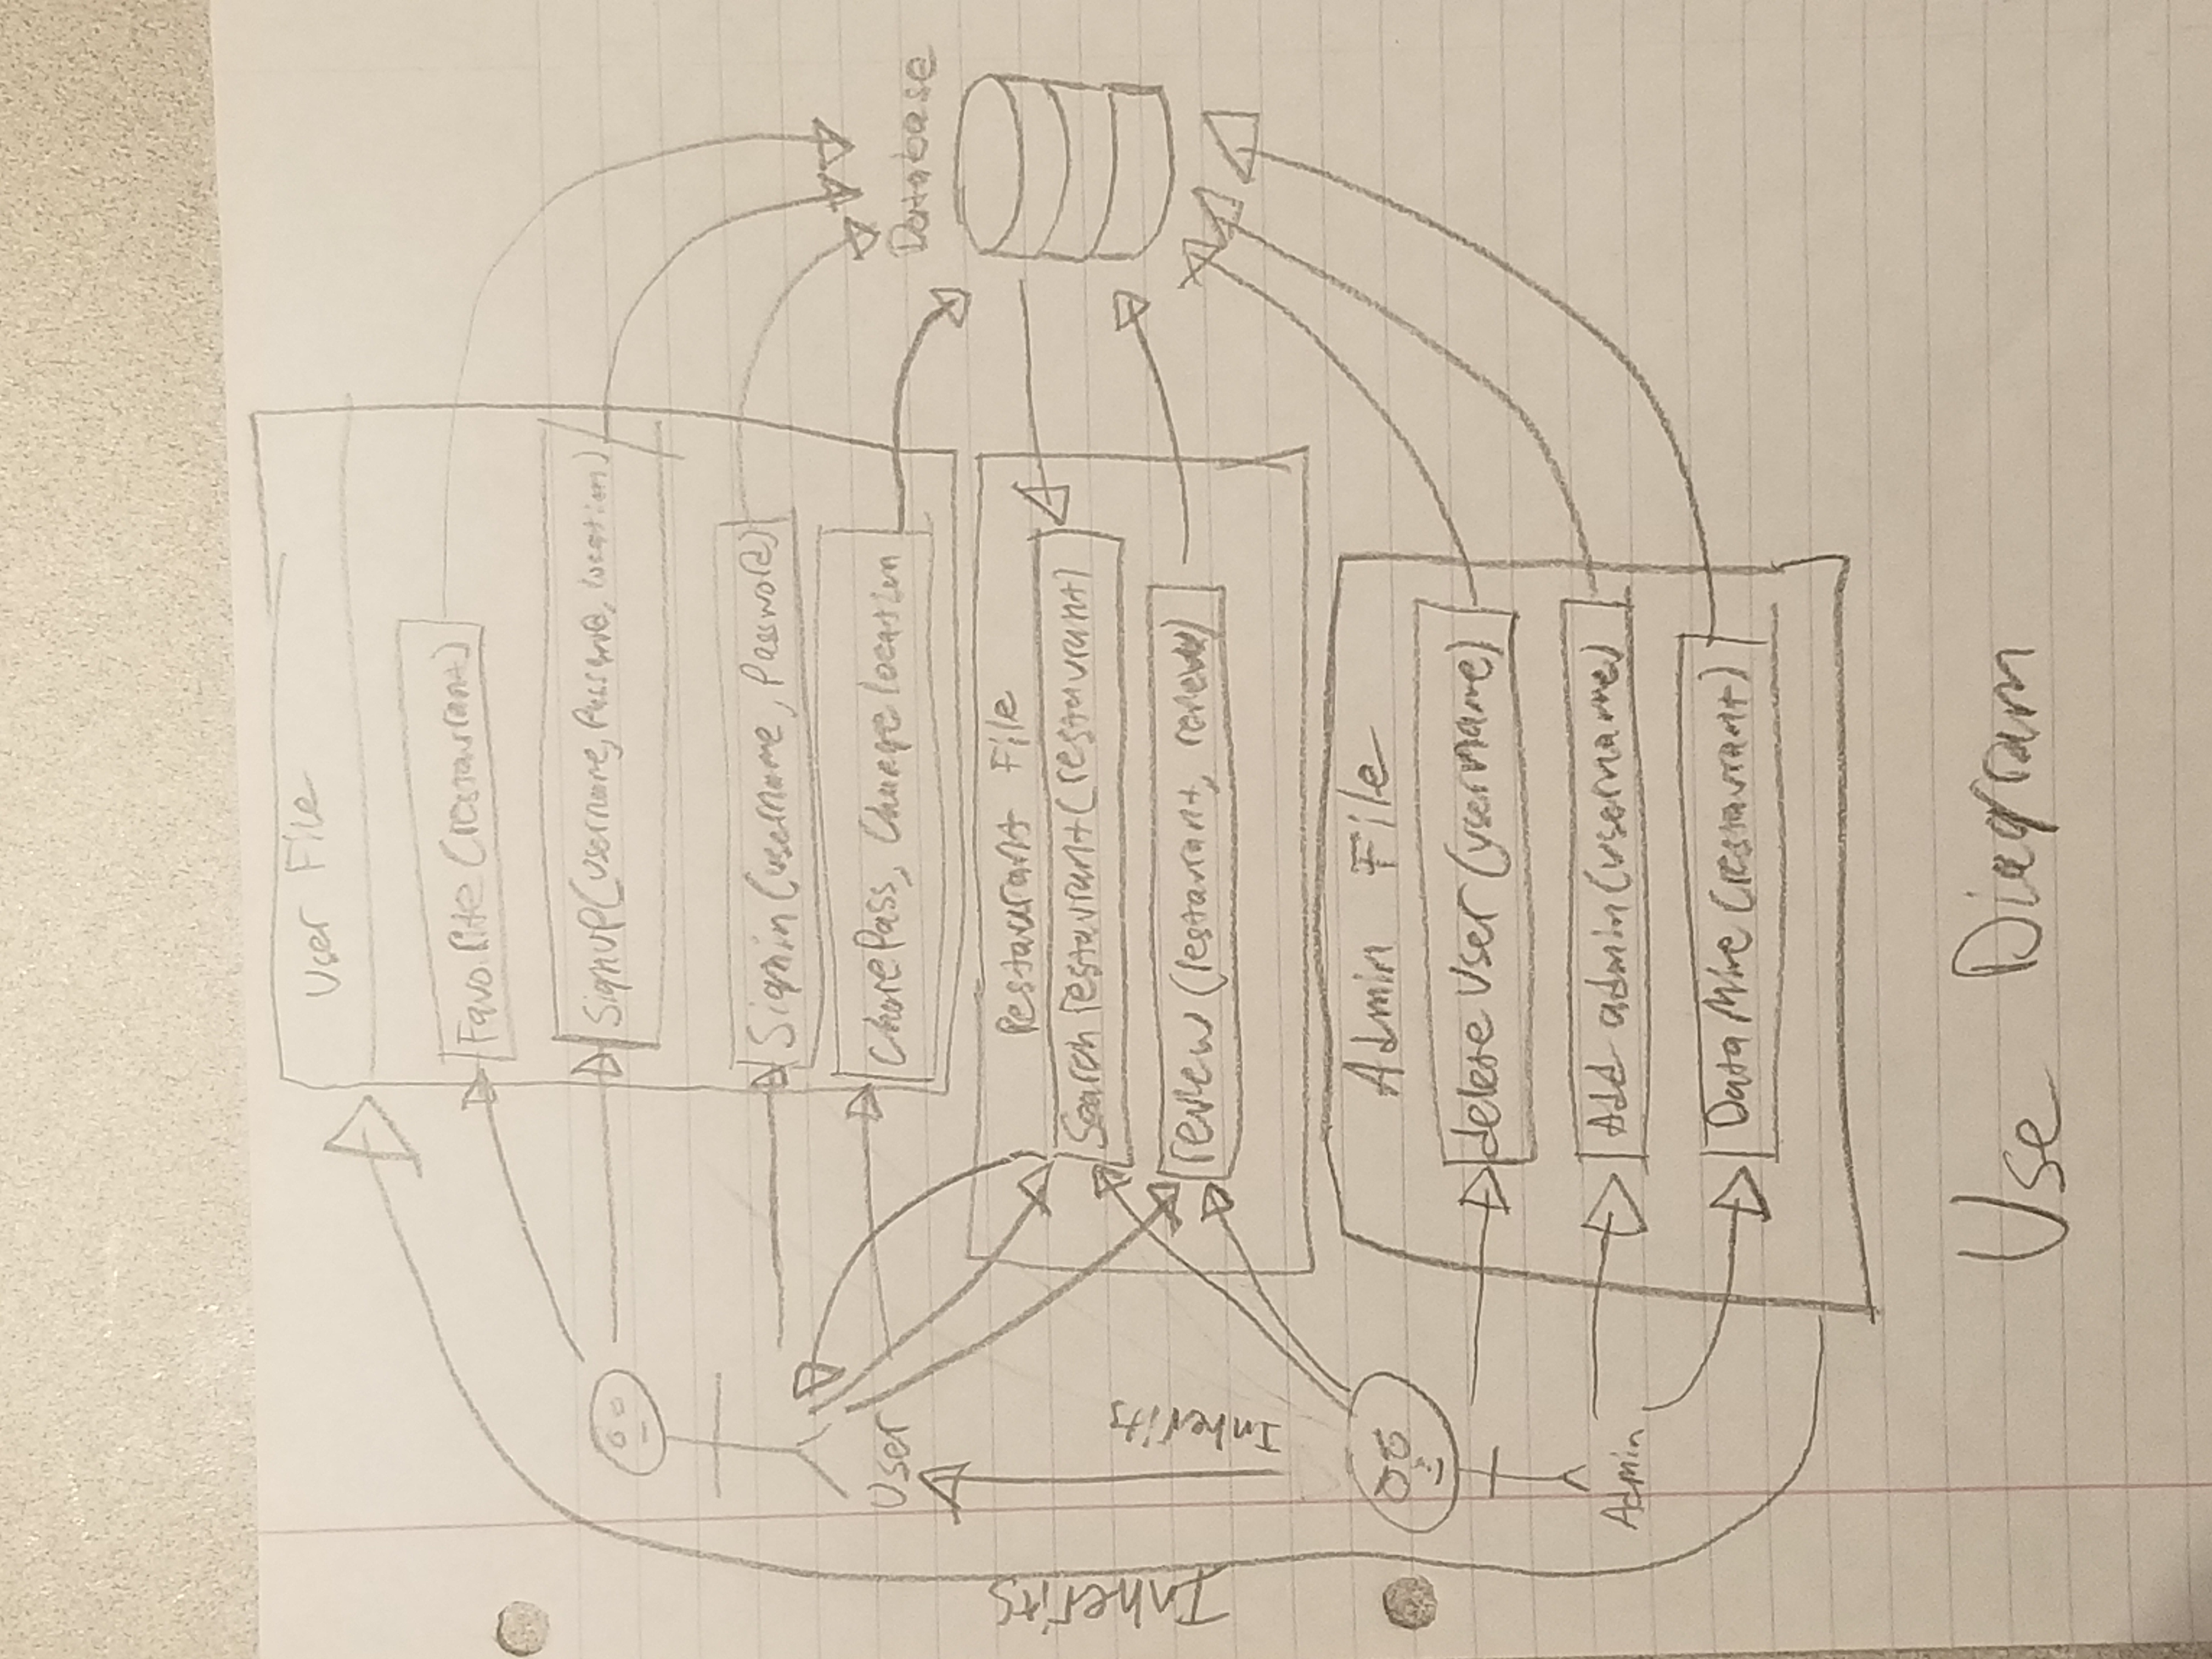 User File
Favorite (restaurant)
Signup(username, Password, location)
Signin (username, Password)
Pass, Change location
User
Database
Inherits
Inherits
Restaurant File
Search restaurant (restaurant)
review (restaurant, review)
Admin File
delete User (username)
Add admin (username)
Admin
Data Mine (restaurant)
Use Diagram